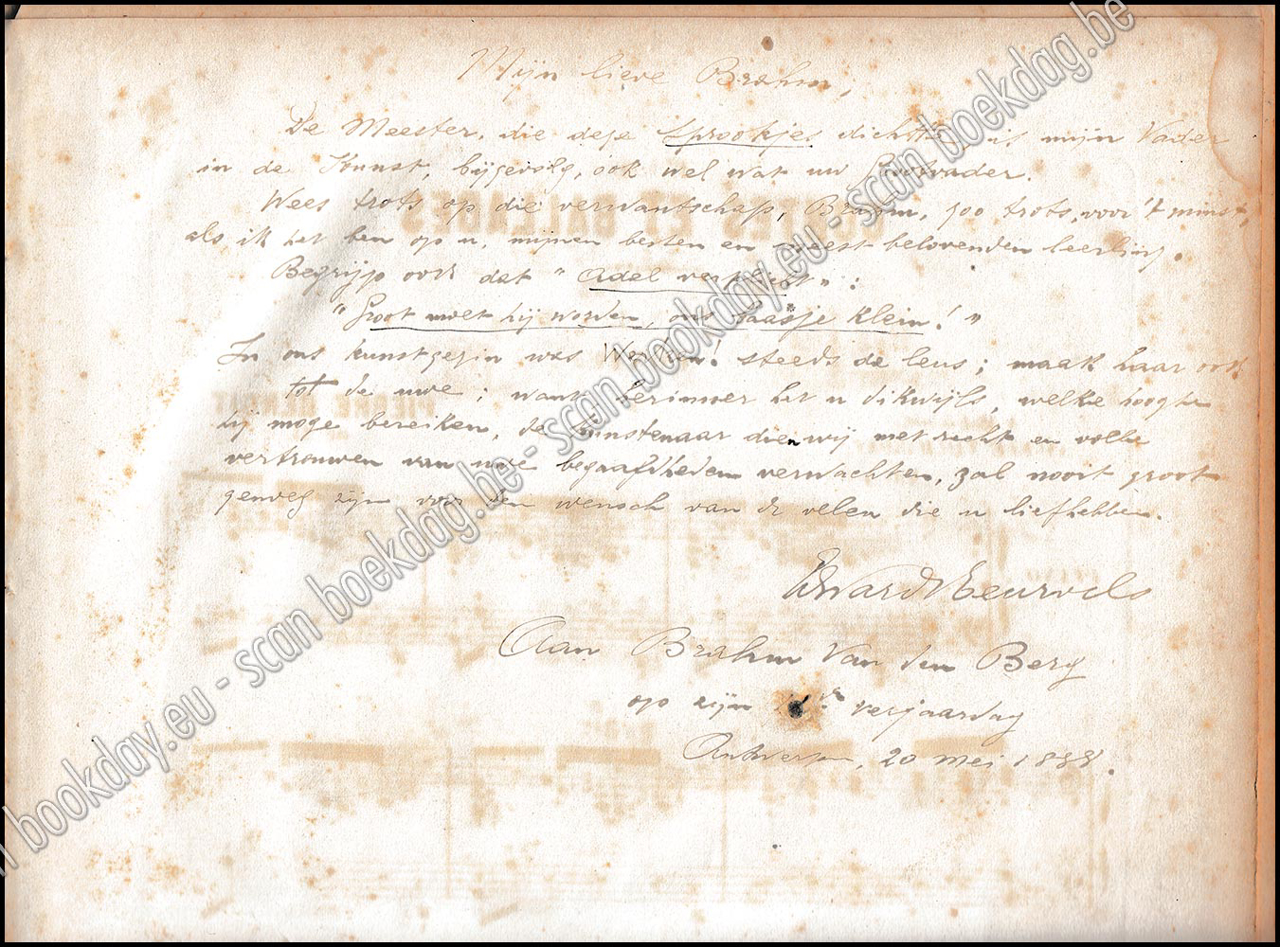 Mijn lieve Brahm,
De Meester, die deze Sprookjes dichtte, is mijn Vader
in de Kunst, bijgevolg, ook wel wat uw Grootvader.
Wees trots op die verwantschap, Brahm, zoo trots, voor 't minst,
als ik het ben op u, mijnen besten en meest belovenden leerling.
Begrijp ook dat "Adel verplicht":
"Groot moet hij worden, ons baasje klein!"
In ons kunstgezin was Werken! steeds de leus; maak haar ook
tot de uwe; want, herinner het u dikwijls, welke hoogte
hij moge bereiken, de kunstenaar dien wij met recht en volle
vertrouwen van uwe begaafdheden verwachten, zal nooit groot
genoeg zijn voor den wensch van de velen die u liefhebben.
Edward Keurvels
Aan Brahm Van den Berg
op zijn verjaardag
Antwerpen, 20 Mei 1888.
CONTES ET BALLADES
PIERRE BENOIT
scan bookday.eu - scan boekdag.be - scan bookday.eu - scan boekdag.be